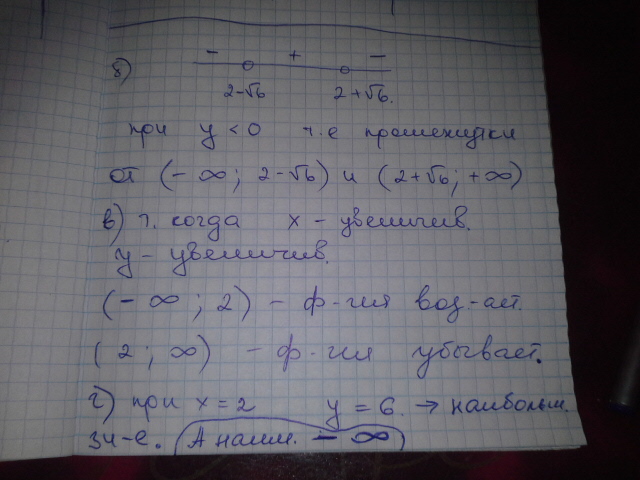 - + -
б)
2-√6 2+√6.
при y < 0 т.е промежутки
от (- ∞; 2-√6) и (2+√6; +∞)
в) т. когда x - увеличив.
y - увеличив.
(- ∞; 2) - ф-ция воз-ает.
(2; ∞) - ф-ция убывает.
г) при x = 2 y = 6. → наибольш.
зн-е. (А наим. - ∞)